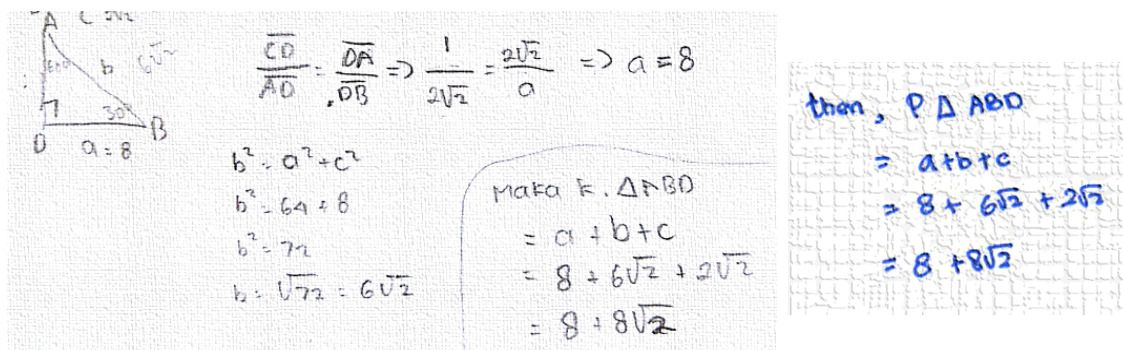 A c 2√2
60°
b 6√2
30°
D B
a = 8
CD/AD = DA/DB => 1/2√2 = 2√2/a => a = 8
b² = a² + c²
b² = 64 + 8
b² = 72
b = √72 = 6√2
Maka k. △ABD
= a + b + c
= 8 + 6√2 + 2√2
= 8 + 8√2
then, P △ ABD
= a+b+c
= 8 + 6√2 + 2√2
= 8 + 8√2